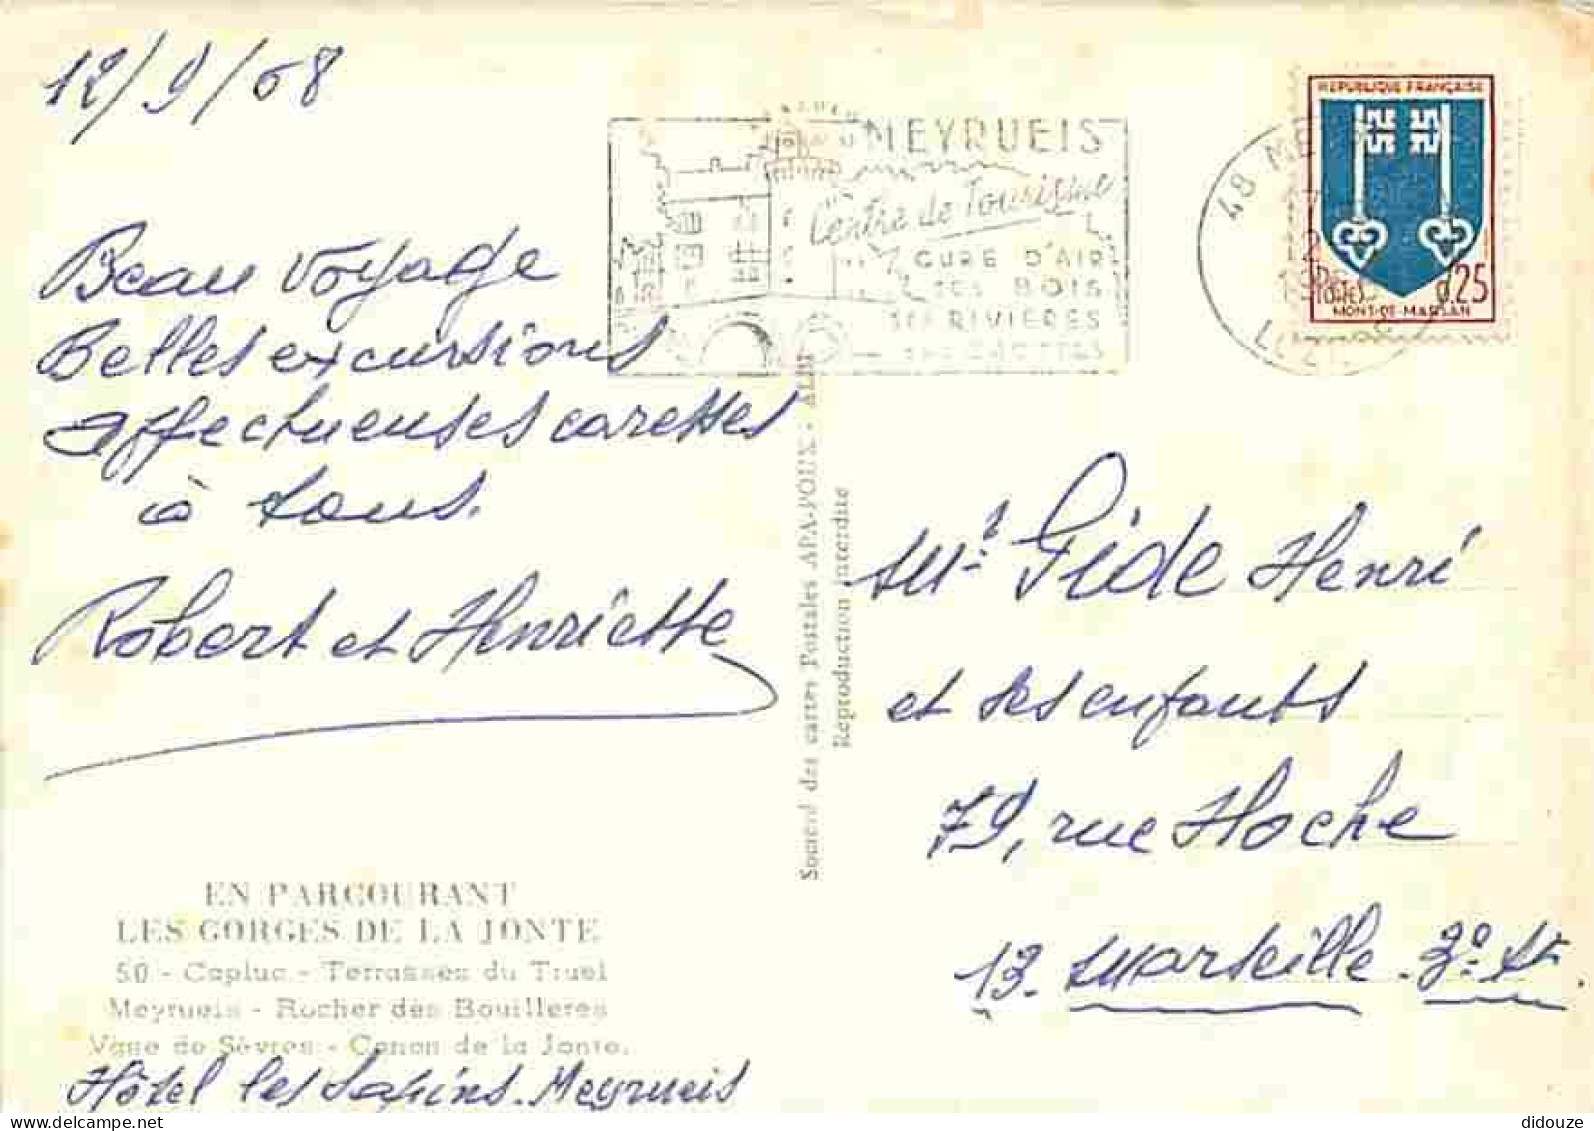 12/9/68
MEYRUEIS
Centre de Tourisme
CURE D'AIR
SES BOIS
SES RIVIERES
48
REPUBLIQUE FRANÇAISE
POSTES 0,25
MONT-DE-MARSAN
Beau voyage
Belles excursions
affectueuses caresses
à tous.
Robert et Henriette
EN PARCOURANT
LES GORGES DE LA JONTE
50 - Capluc - Terrasses du Truel
Meyrueis - Rocher des Bouilleres
Vase de Sèvres - Canon de la Jonte.
Hôtel les Sapins. Meyrueis
Société des cartes Postales APA-POUX - ALBI
Reproduction interdite
Mr. Gide Henri
et ses enfants
79, rue Hoche
13. Marseille. 3º. At.
didouze @ delcampe.net